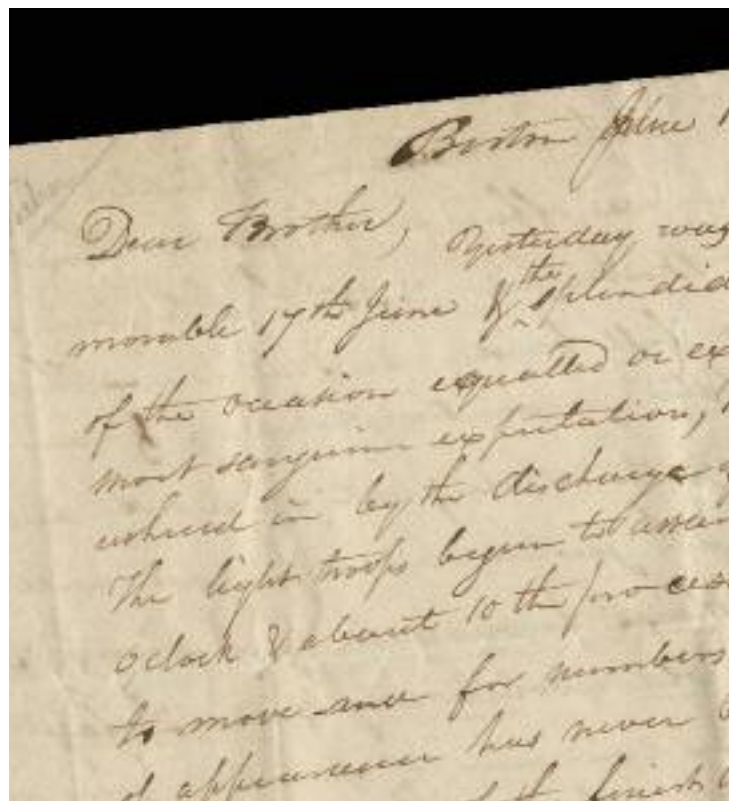 Boston June 1
Dear Brother, Yesterday was
morable 17th June & the splendid
of the occasion equalled or ex
most sanguine expectation,
ushered in by the discharge of
The light troops began to assem
oclock & about 10 the proces
to move and for numbers
& appearance has never
of the finest